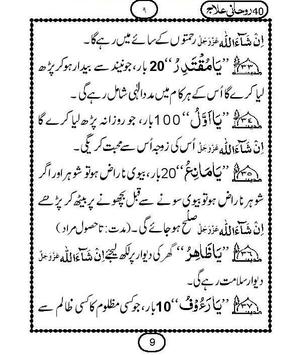 40 روحانی علاج
۹
اِنْ شَآءَاللہ عَزَّوَجَلَّ رحمتوں کے سائے میں رہے گا۔
﴿۳۴﴾ ”یَامُقْتَدِرُ“ 20 بار، جو نیند سے بیدار ہوکر پڑھ
لیا کرے گا اُس کے ہر کام میں مددِ الٰہی شامل رہے گی۔
﴿۳۵﴾ ”یَااَوَّلُ“ 100 بار، جو روزانہ پڑھ لیا کرے گا
اِنْ شَآءَاللہ عَزَّوَجَلَّ اُس کی زوجہ اُس سے محبت کریگی۔
”یَامَانِعُ“ 20 بار، بیوی ناراض ہو تو شوہر اور اگر
شوہر ناراض ہو تو بیوی سونے سے قبل بچھونے پر بیٹھ کر پڑھے
اِنْ شَآءَاللہ عَزَّوَجَلَّ صلح ہو جائے گی۔ (مدت: تا حصولِ مراد)
﴿۳۶﴾ ”یَاظَاھِرُ“ گھر کی دیوار پر لکھ لیجئے اِنْ شَآءَاللہ عَزَّوَجَلَّ
دیوار سلامت رہے گی۔
﴿۳۷﴾ ”یَارَءُوْفُ“ 10 بار، جو کسی مظلوم کا کسی ظالم سے
9